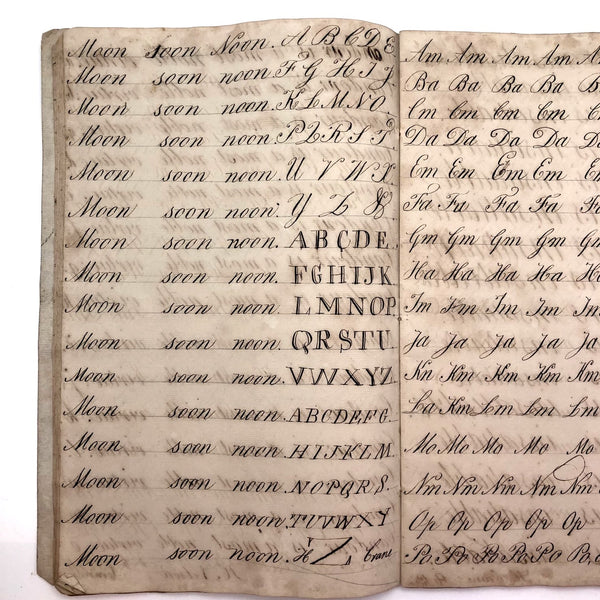 Moon soon Noon. A B C D E
Moon soon noon. F G H I J
Moon soon noon. K L M N O
Moon soon noon. P Q R S T
Moon soon noon. U V W X
Moon soon noon. Y Z &
Moon soon noon. A B C D E
Moon soon noon. F G H I J K
Moon soon noon. L M N O P
Moon soon noon. Q R S T U
Moon soon noon. V W X Y Z
Moon soon noon. A B C D E F G
Moon soon noon. H I J K L M
Moon soon noon. N O P Q R S.
Moon soon noon. T U V W X Y
Moon soon noon. Z Crane
Am Am Am Am A
Ba Ba Ba Ba B
Cm Cm Cm Cm Cm
Da Da Da Da Da
Em Em Em Em Em
Fa Fa Fa Fa Fa
Gm Gm Gm Gm Gm
Ha Ha Ha Ha Ha
Im Im Im Im Im
Ja Ja Ja Ja Ja
Kn Km Km Km Km
La Km Lm Lm Lm
Mo Mo Mo Mo Mo
Nm Nm Nm Nm Nm
Op Op Op Op Op
Po Po Po Po Po Po